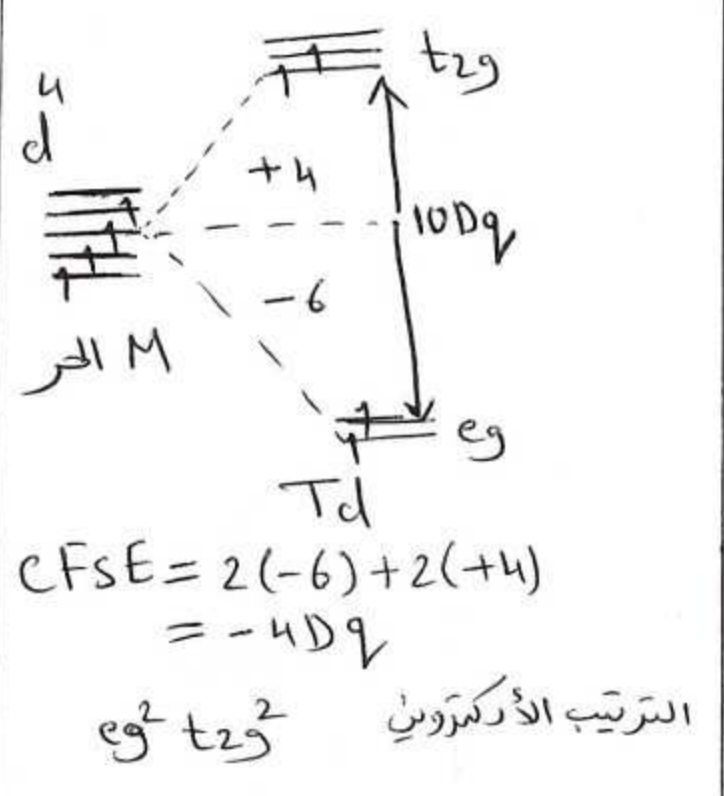 t₂g
d⁴
+4
10Dq
-6
M الحر
eg
Td
CFSE = 2(-6)+2(+4)
= -4Dq
eg² t₂g² الترتيب الألكتروني